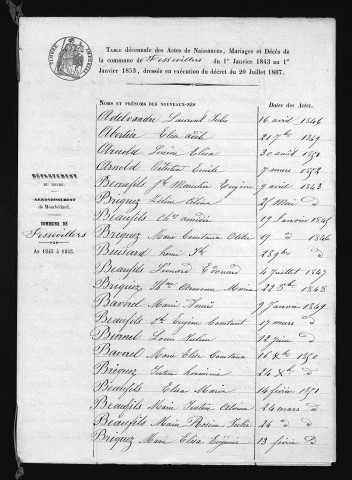 TIMBRE IMPERIAL
TABLE décennale des Actes de Naissances, Mariages et Décès de
la commune de Fessevillers du 1er Janvier 1843 au 1er
Janvier 1853, dressée en exécution du décret du 20 Juillet 1807.
DÉPARTEMENT
DU DOUBS.
ARRONDISSEMENT
de Montbéliard.
COMMUNE DE
Fessevillers
An 1843 à 1853.
NOMS ET PRÉNOMS DES NOUVEAUX-NÉS
Dates des Actes.
Laurent Jules 16 avril 1846
Elise 21 7bre 1849
Arnold Elisa 30 août 1851
Arnold Célestin Emile 7 mars 1852
Beaufils Eugène 9 avril 1843
Briquez d
Beaufils amédée 19 Janvier 1845
Briquez Marie Constance 17 d 1846
28 9bre d
Beaufils Léonard Edouard 4 Juillet 1847
Briquez Marie 22 8bre 1848
Bavrel Marie 9 Janvier 1849
Beaufils Eugène Constant 17 mars d
Burnel Louis 12 Juin d
Bavrel Marie Elise Constance 16 1850
Briquez 24 d
Beaufils Elisa Maria 14 février 1851
Beaufils Marie Justine 24 mars d
Beaufils Marie Rosine Julie 24 d d
Briquez Marie Elisa Eugénie 13 février d